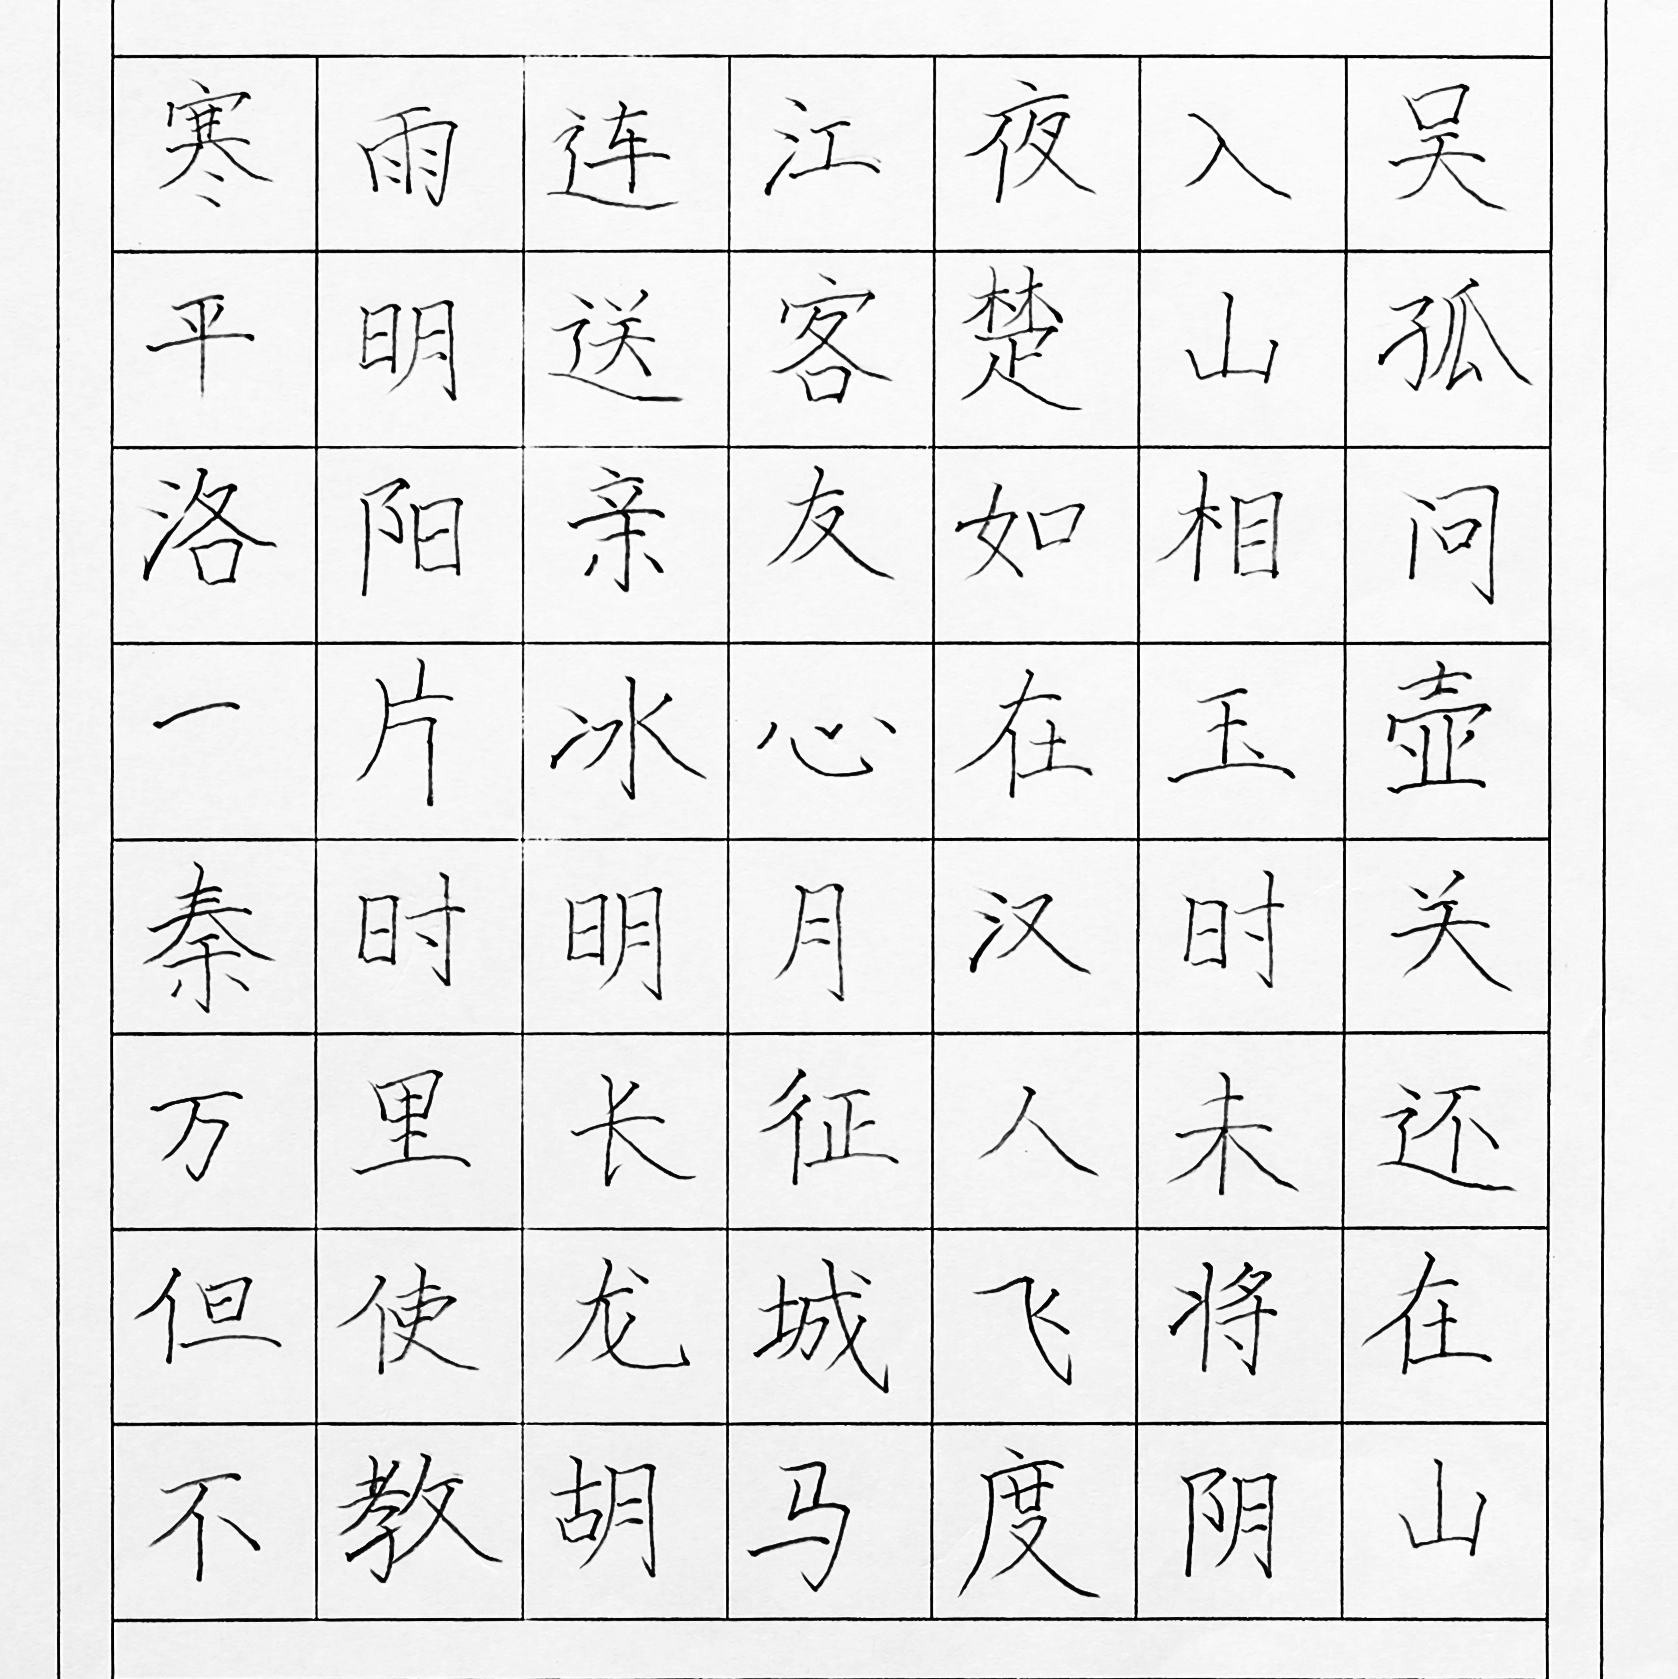 寒雨连江夜入吴
平明送客楚山孤
洛阳亲友如相问
一片冰心在玉壶
秦时明月汉时关
万里长征人未还
但使龙城飞将在
不教胡马度阴山